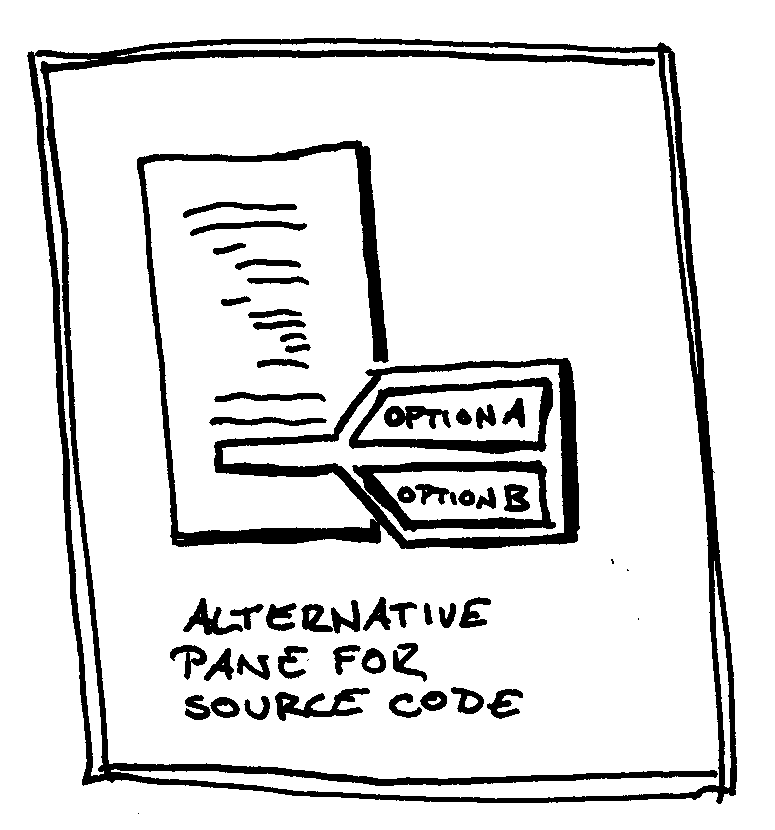 OPTION A
OPTION B
ALTERNATIVE
PANE FOR
SOURCE CODE